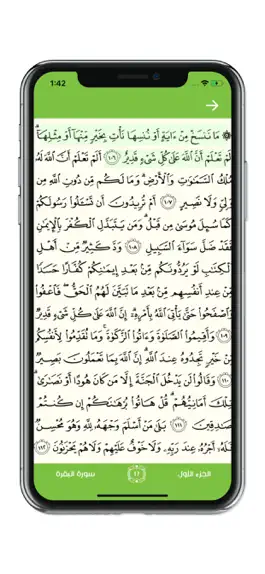 1:42
→
۞ مَا نَنسَخْ مِنْ ءَايَةٍ أَوْ نُنسِهَا نَأْتِ بِخَيْرٍ مِّنْهَآ أَوْ مِثْلِهَآ
أَلَمْ تَعْلَمْ أَنَّ ٱللَّهَ عَلَىٰ كُلِّ شَىْءٍ قَدِيرٌ ١٠٦ أَلَمْ تَعْلَمْ أَنَّ ٱللَّهَ لَهُۥ
مُلْكُ ٱلسَّمَٰوَٰتِ وَٱلْأَرْضِ وَمَا لَكُم مِّن دُونِ ٱللَّهِ مِن
وَلِىٍّ وَلَا نَصِيرٍ ١٠٧ أَمْ تُرِيدُونَ أَن تَسْـَٔلُوا۟ رَسُولَكُمْ
كَمَا سُئِلَ مُوسَىٰ مِن قَبْلُ وَمَن يَتَبَدَّلِ ٱلْكُفْرَ بِٱلْإِيمَٰنِ
فَقَدْ ضَلَّ سَوَآءَ ٱلسَّبِيلِ ١٠٨ وَدَّ كَثِيرٌ مِّنْ أَهْلِ
ٱلْكِتَٰبِ لَوْ يَرُدُّونَكُم مِّنۢ بَعْدِ إِيمَٰنِكُمْ كُفَّارًا حَسَدًا
مِّنْ عِندِ أَنفُسِهِم مِّنۢ بَعْدِ مَا تَبَيَّنَ لَهُمُ ٱلْحَقُّ فَٱعْفُوا۟
وَٱصْفَحُوا۟ حَتَّىٰ يَأْتِىَ ٱللَّهُ بِأَمْرِهِۦٓ إِنَّ ٱللَّهَ عَلَىٰ كُلِّ شَىْءٍ قَدِيرٌ
١٠٩ وَأَقِيمُوا۟ ٱلصَّلَوٰةَ وَءَاتُوا۟ ٱلزَّكَوٰةَ وَمَا تُقَدِّمُوا۟ لِأَنفُسِكُم
مِّنْ خَيْرٍ تَجِدُوهُ عِندَ ٱللَّهِ إِنَّ ٱللَّهَ بِمَا تَعْمَلُونَ بَصِيرٌ
١١٠ وَقَالُوا۟ لَن يَدْخُلَ ٱلْجَنَّةَ إِلَّا مَن كَانَ هُودًا أَوْ نَصَٰرَىٰ
تِلْكَ أَمَانِيُّهُمْ قُلْ هَاتُوا۟ بُرْهَٰنَكُمْ إِن كُنتُمْ
صَٰدِقِينَ ١١١ بَلَىٰ مَنْ أَسْلَمَ وَجْهَهُۥ لِلَّهِ وَهُوَ مُحْسِنٌ
فَلَهُۥٓ أَجْرُهُۥ عِندَ رَبِّهِۦ وَلَا خَوْفٌ عَلَيْهِمْ وَلَا هُمْ يَحْزَنُونَ ١١٢
الجزء الأول ١٧ سورة البقرة